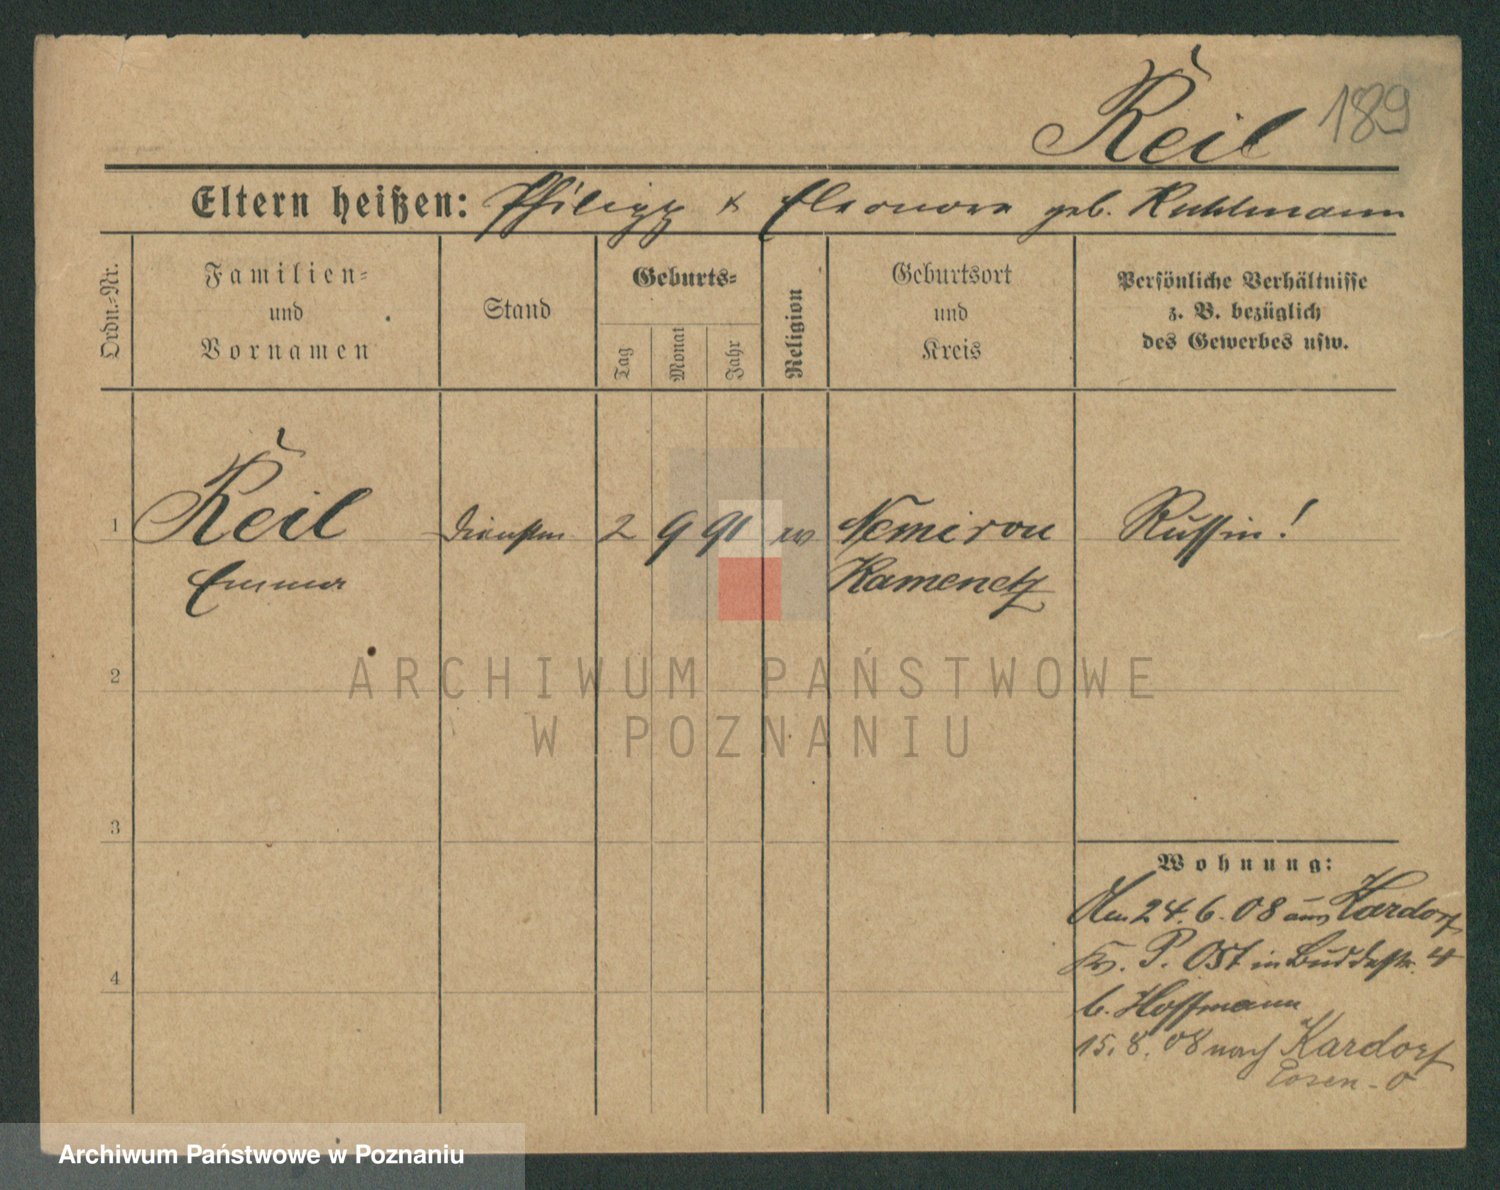 Keil 189
Eltern heißen: Philipp & Eleonore geb. Kuhlmann
Ordn.=Nr.
Familien=
und
Vornamen
Stand
Geburts=
Tag
Monat
Jahr
Religion
Geburtsort
und
Kreis
Persönliche Verhältnisse
z. B. bezüglich
des Gewerbes usw.
1 Keil 2 9 91 Nemirow Russin!
Emma Kamenetz
2
3
4
Wohnung:
Am 24.6.08 aus Kardorf
Kr. P. Ost in Buddestr. 4
b. Hoffmann
15.8.08 nach Kardorf
Posen-O
ARCHIWUM PAŃSTWOWE
W POZNANIU
Archiwum Państwowe w Poznaniu